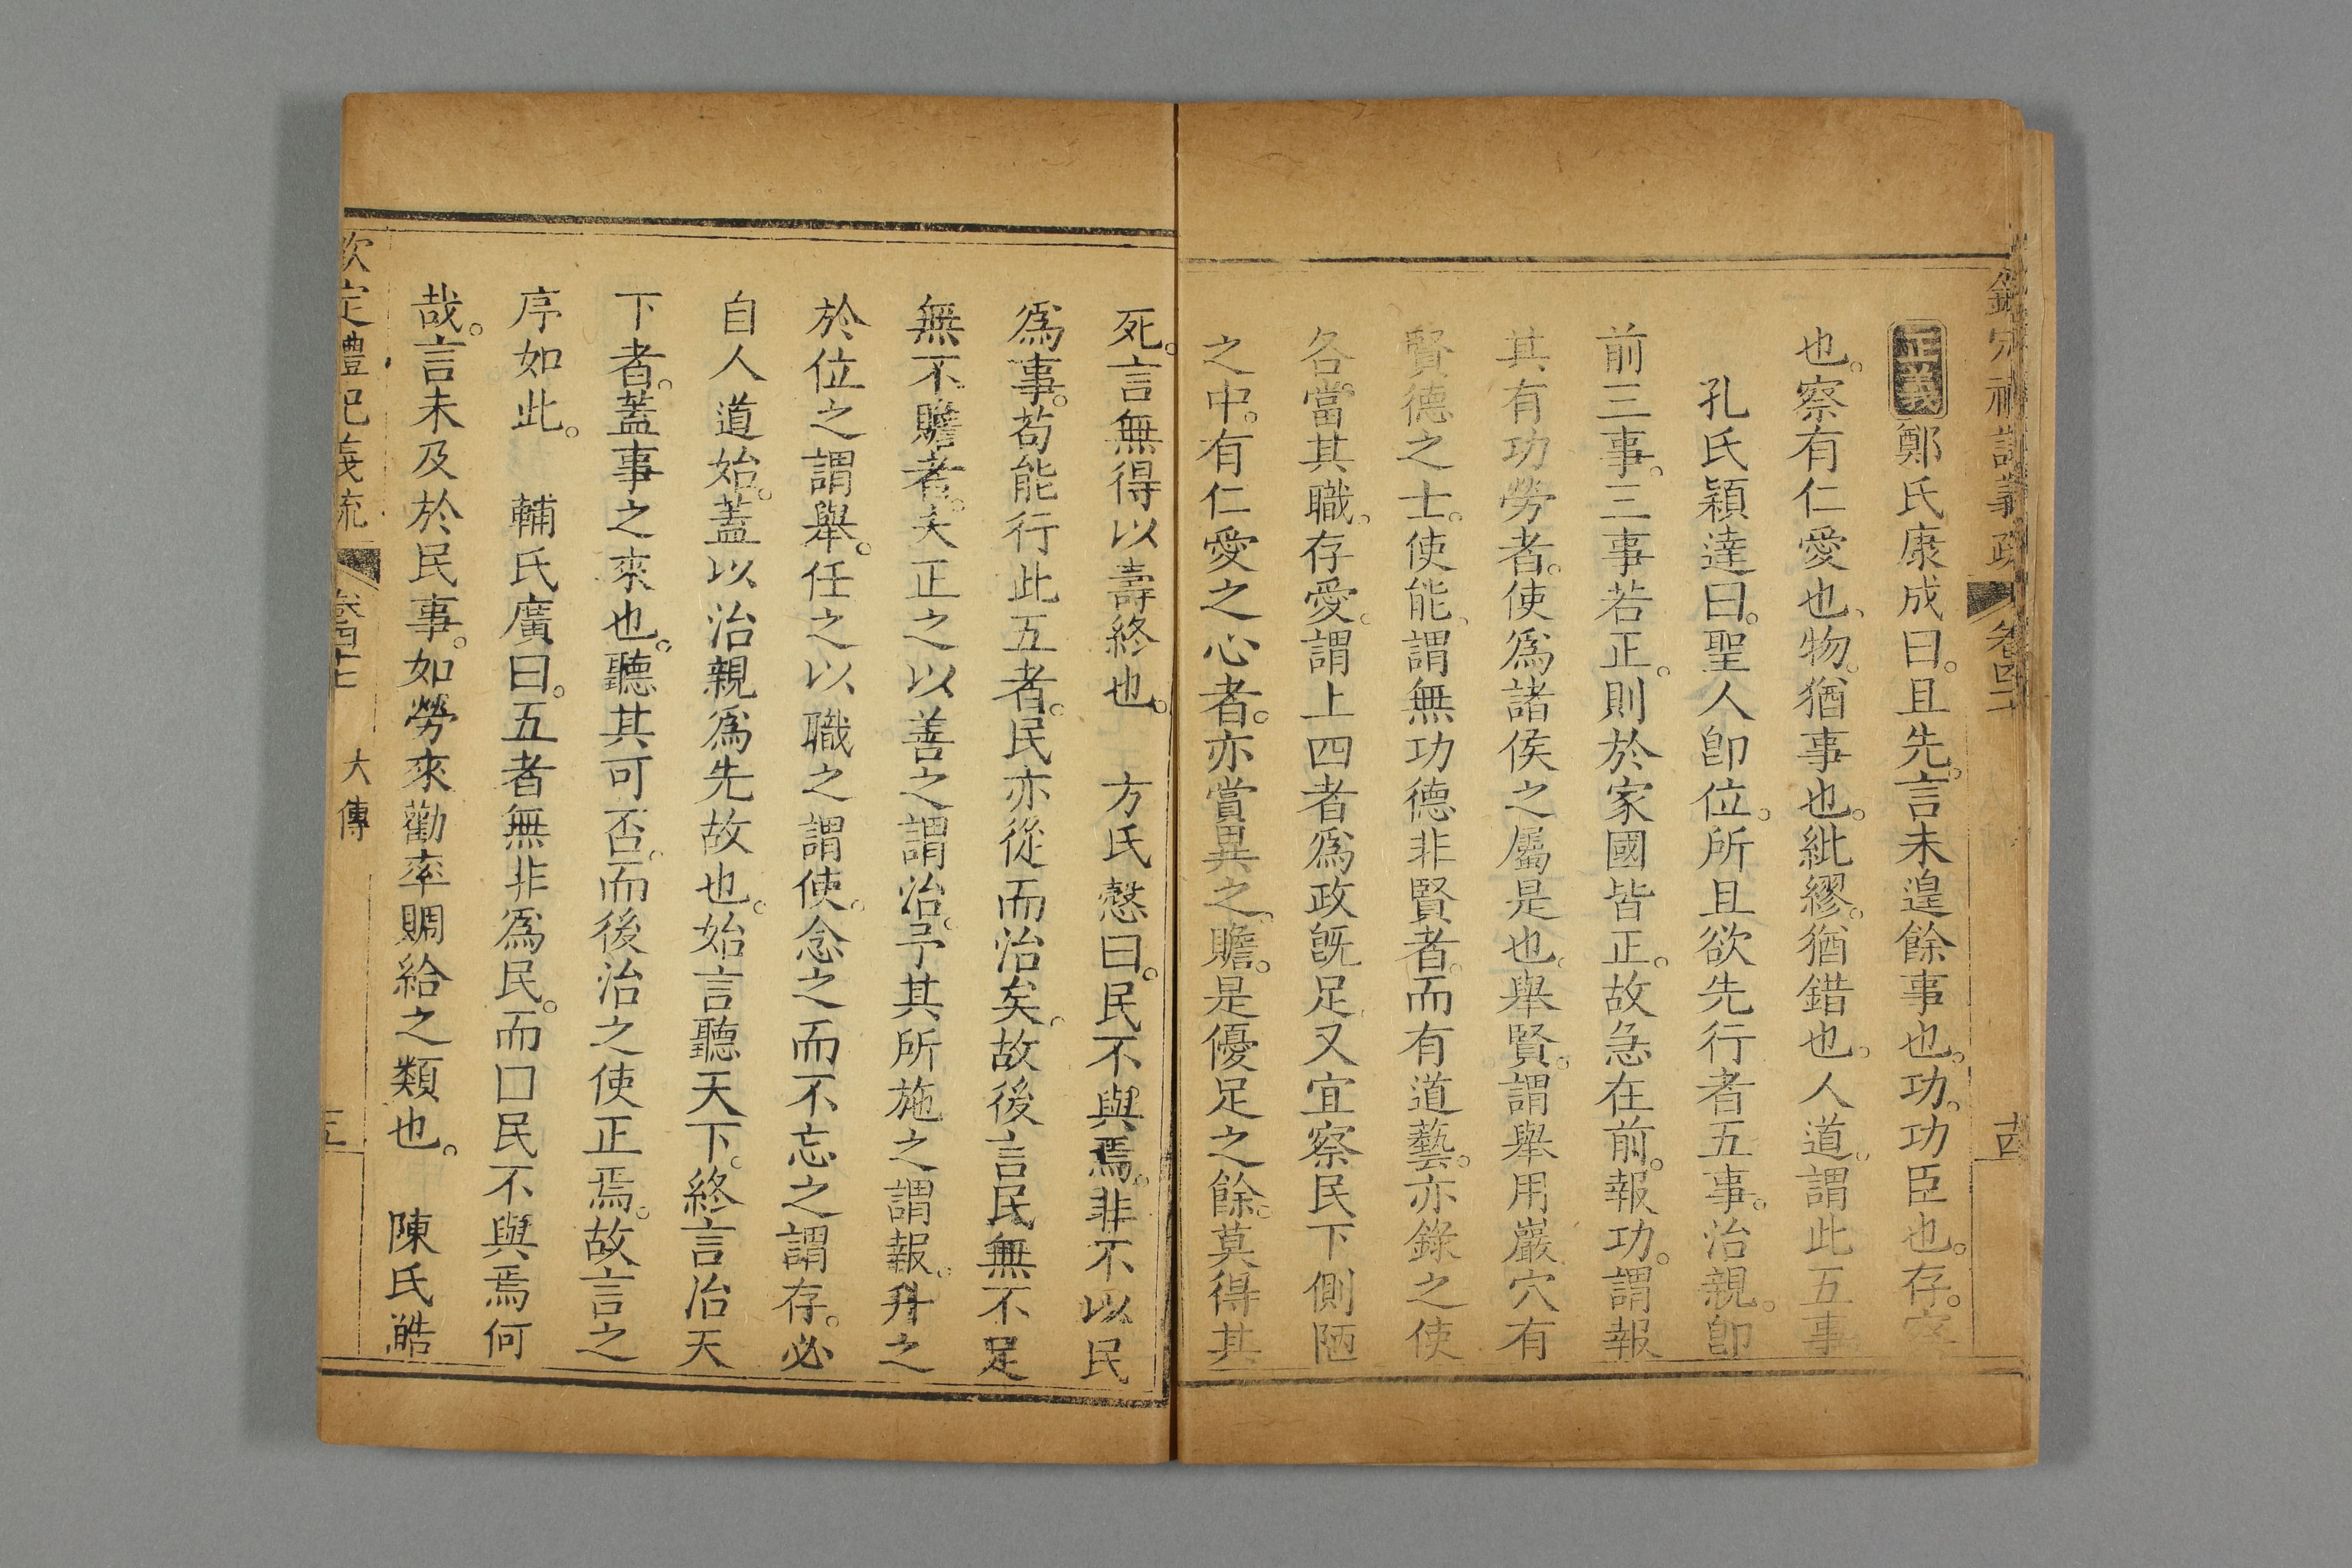 欽定禮記義疏 卷四十 十四
正義鄭氏康成曰。且先。言未遑餘事也。功。功臣也。存。察
也。察有仁愛也。物。猶事也。紕繆。猶錯也。人道。謂此五事
孔氏穎達曰。聖人卽位。所且欲先行者五事。治親。卽
前三事。三事若正。則於家國皆正。故急在前。報功。謂報
其有功勞者。使爲諸侯之屬是也。舉賢。謂舉用巖穴有
賢德之士。使能。謂無功德非賢者。而有道藝。亦錄之使
各當其職。存愛。謂上四者爲政旣足。又宜察民下側陋
之中。有仁愛之心者。亦賞異之。贍。是優足之餘。莫得其
死。言無得以壽終也。 方氏慤曰。民不與焉。非不以民
爲事。苟能行此五者。民亦從而治矣。故後言民無不足
無不贍者。夫正之以善之謂治。予其所施之謂報。升之
於位之謂舉。任之以職之謂使。念之而不忘之謂存。必
自人道始。蓋以治親爲先故也。始言聽天下。終言治天
下者。蓋事之來也。聽其可否。而後治之使正焉。故言之
序如此。 輔氏廣曰。五者無非爲民。而曰民不與焉何
哉。言未及於民事。如勞來勸率賙給之類也。 陳氏澔
欽定禮記義疏 卷四十七 大傳